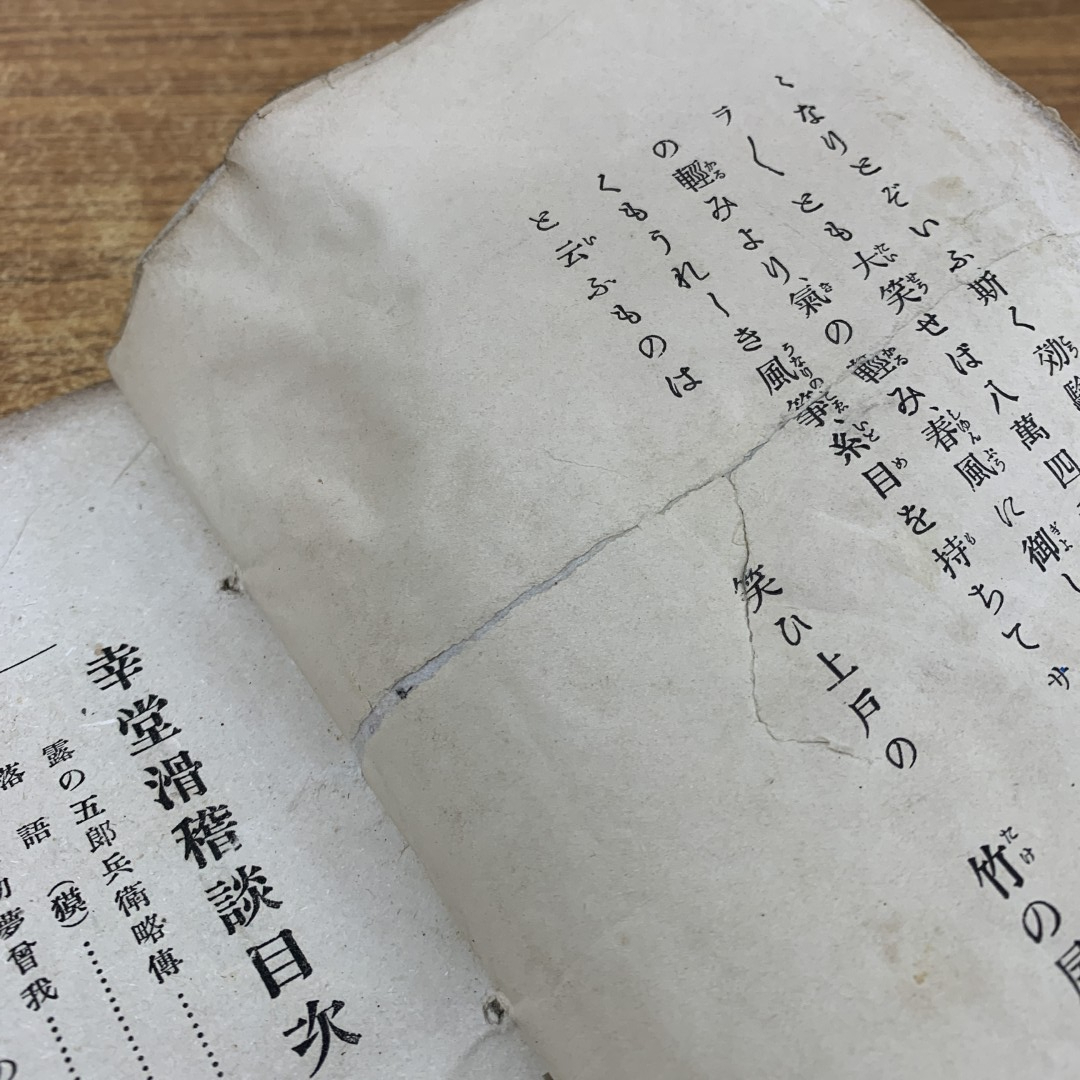 なりとぞいふ斯く効
ラ〱とも大笑せば八萬四
の輕みより、氣の輕み、春風に御し
くもうれしき風箏、糸目を持ちてサ
と云ふものは
笑ひ上戸の　竹の
幸堂滑稽談目次
露の五郎兵衛略傳…………
落語（獏）…………
夢曾我…………
の